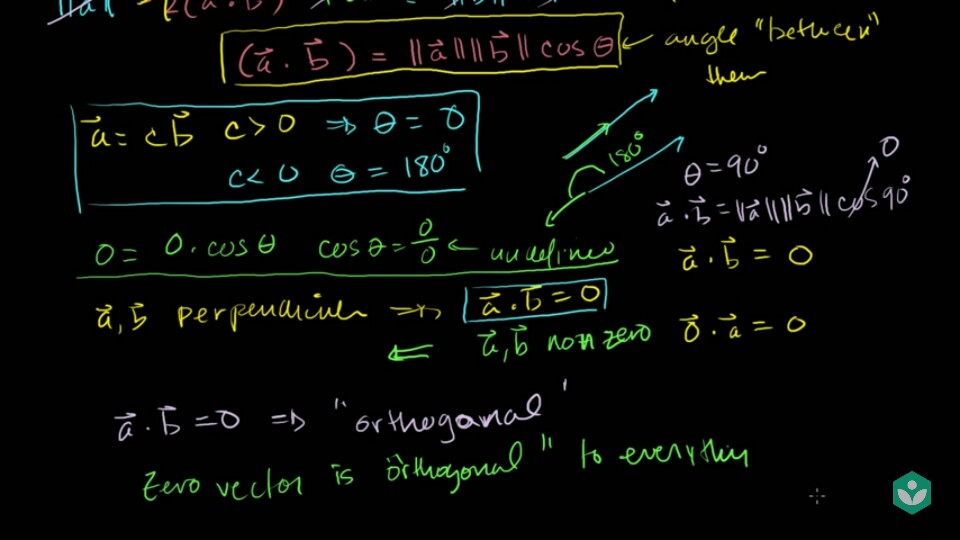 (a⃗ · b⃗) = ||a⃗|| ||b⃗|| cos θ ← angle "between"
them
a⃗ = cb⃗ c > 0 ⇒ θ = 0
c < 0 θ = 180°
180°
θ = 90°
0
a⃗ · b⃗ = ||a⃗|| ||b⃗|| cos 90°
a⃗ · b⃗ = 0
0 = 0 · cos θ cos θ = 0/0 ← undefined
a⃗, b⃗ perpendicular ⇒ a⃗ · b⃗ = 0
⇐ a⃗, b⃗ non zero
0⃗ · a⃗ = 0
a⃗ · b⃗ = 0 ⇒ "orthogonal"
Zero vector is orthogonal" to everything